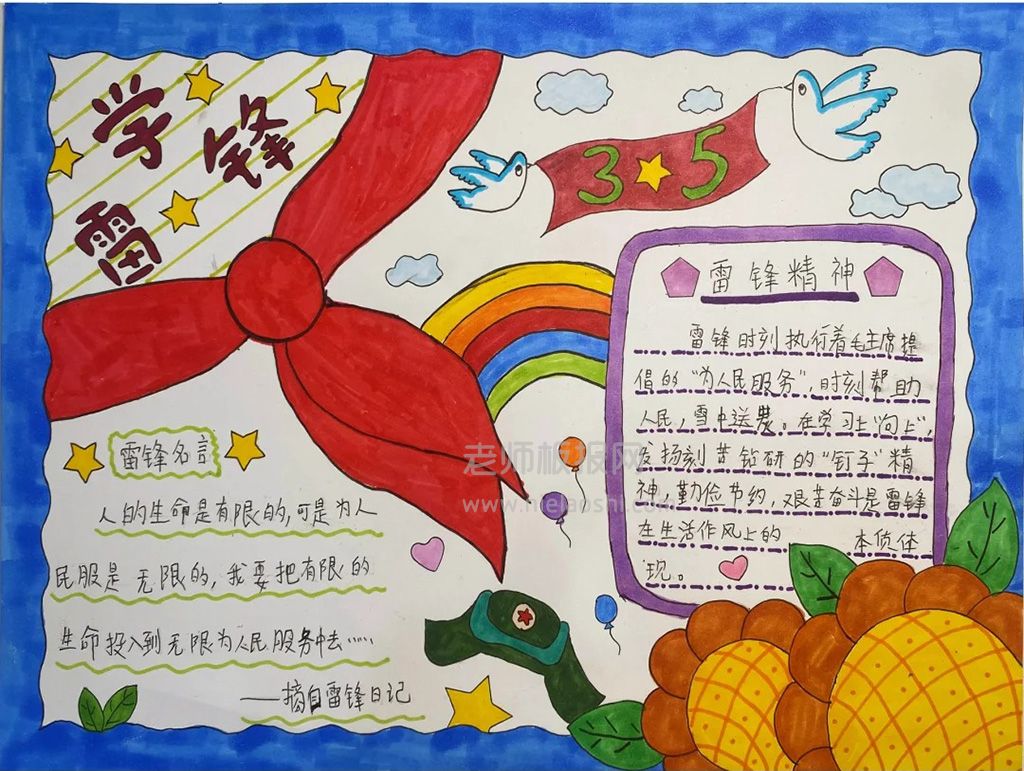 学雷锋
3 5
雷锋精神
雷锋时刻执行着毛主席提
倡的“为人民服务”,时刻帮助
人民,雪中送炭。在学习上“向上”,
发扬刻苦钻研的“钉子”精
神,勤俭节约,艰苦奋斗是雷锋
在生活作风上的 本质体
现。
雷锋名言
人的生命是有限的,可是为人
民服是无限的,我要把有限的
生命投入到无限为人民服务中去……
——摘自雷锋日记
老师板报网